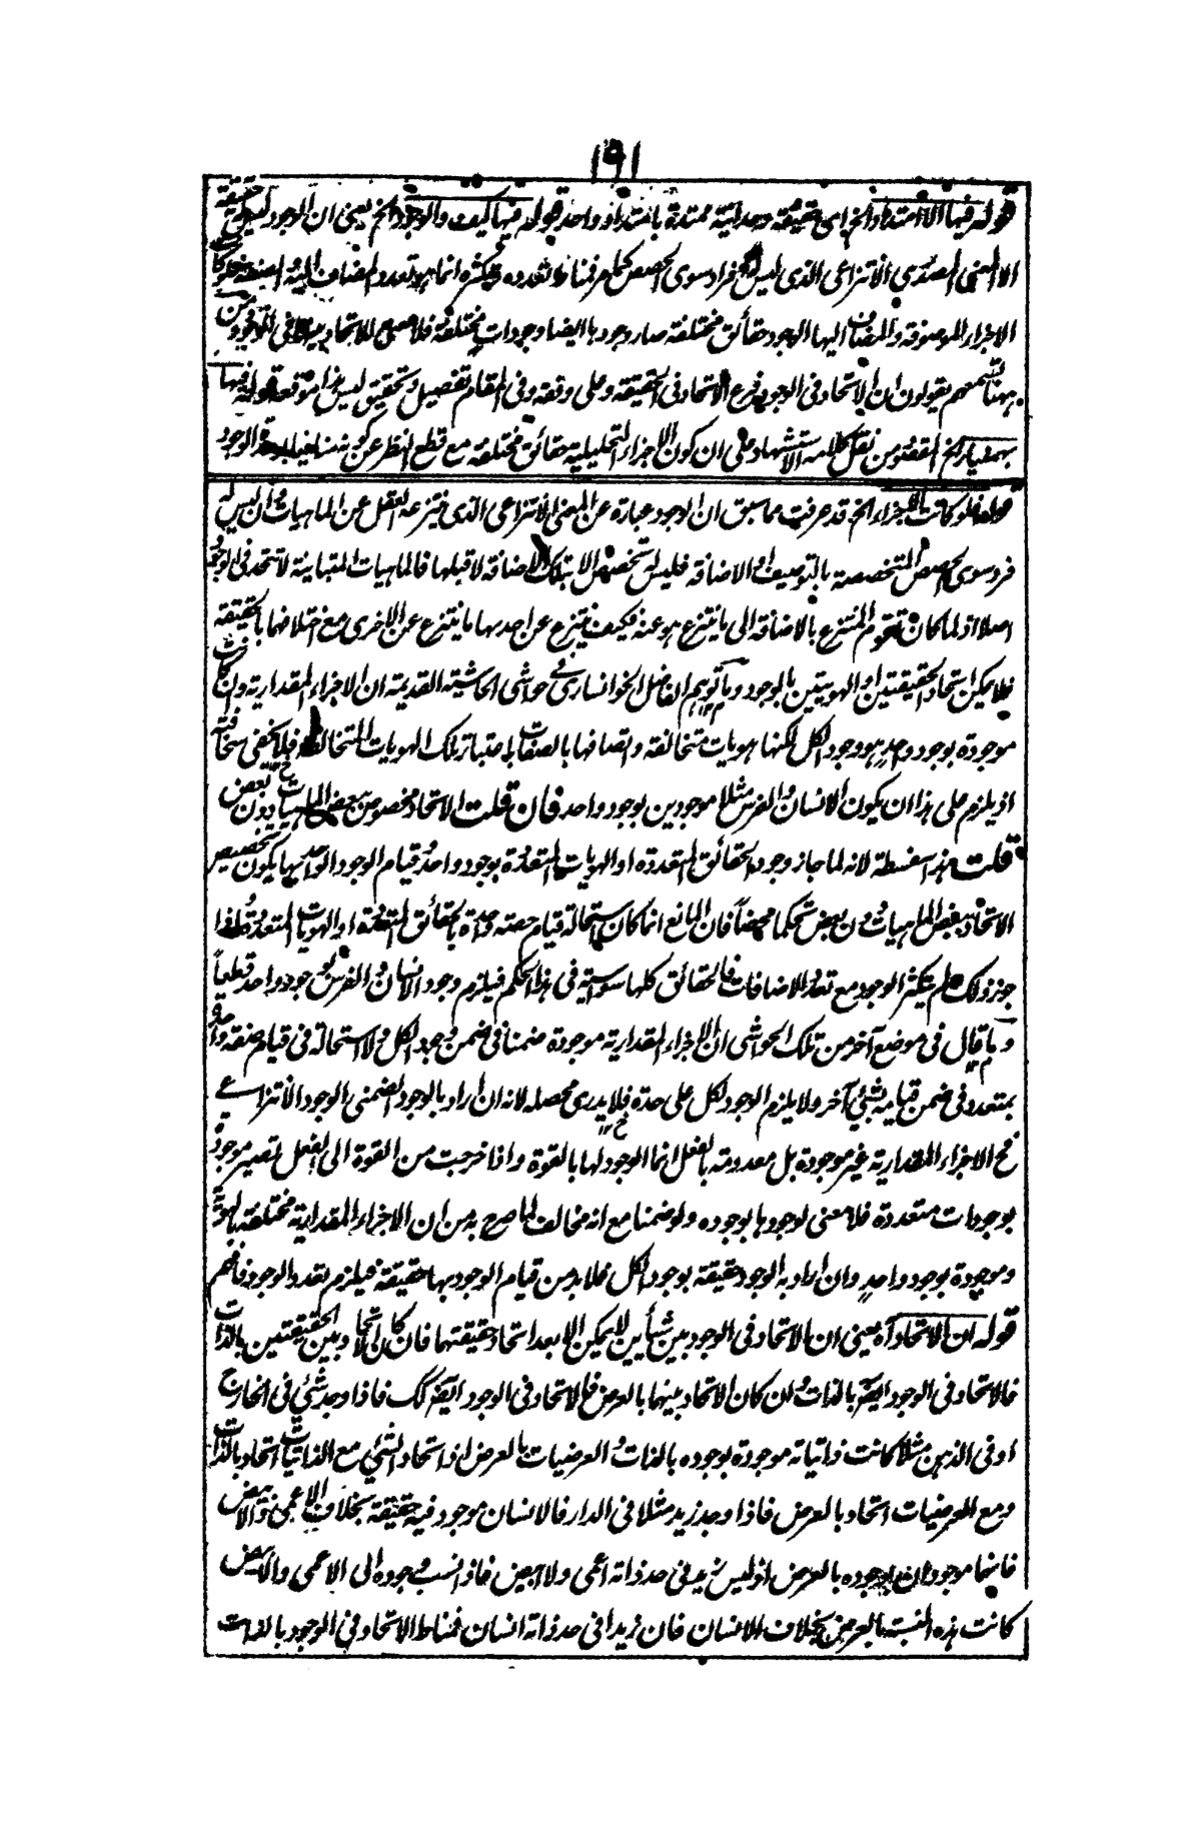 ١٩١
قوله فيها الا امتداد الخ اى حقيقة وحدانية ممتدة بامتداد واحد قوله فيها كيف والوجود الخ يعنى ان الوجود ليس حقيقة
الا المعنى المصدرى الانتزاعى الذى ليس له افراد سوى الحصص كما عرفت فتعدده وتكثره انما هو بتعدد المضاف اليه او الصفة فلو كانت
الاجزاء الموصوفة والمضاف اليها الوجود حقائق مختلفة صار وجودها ايضا وجودات مختلفة فلا معنى للاتحاد بينها فى الوجود ومن
ههنا تسمعهم يقولون ان الاتحاد فى الوجود فرع الاتحاد فى الحقيقة وعلى وفقه وفى المقام تفصيل وتحقيق ليس هذا موقعه قوله فيها
بهمنيار الخ المقصود من نقل كلامه الاستشهاد على ان كون الاجزاء التحليلية حقائق مختلفة مع قطع النظر عن كونه منافيا لوحدة الوجود
قوله فلو كانت الاجزاء الخ قد عرفت مما سبق ان الوجود عبارة عن المعنى الانتزاعى الذى ينتزعه العقل عن الماهيات وان ليس له
فرد سوى الحصص المتخصصة بالتوصيف او الاضافة فليس تخصصه الا بتلك الاضافة لا قبلها فالماهيات المتباينة لا تتحد فى الوجود
اصلا اذ لما كان تقوم المنتزع بالاضافة الى ما ينتزع هو عنه فكيف ينتزع عن احدهما ما ينتزع عن الاخرى مع اختلافهما بالحقيقة
فلا يمكن اتحاد الحقيقتين او الهويتين بالوجود وما توهم الفاضل الخوانسارى فى حواشى الحاشية القديمة ان الاجزاء المقدارية وان كانت
موجودة بوجود واحد هو وجود الكل لكنها هويات متخالفة واتصافها بالصفات باعتبار تلك الهويات المتخالفة فلا يخفى سخافته
اذ يلزم على هذا ان يكون الانسان والفرس مثلا موجودين بوجود واحد فان قلت الاتحاد مخصوص ببعض الماهيات دون بعض
قلت هذا سفسطة لانه لما جاز وجود الحقائق المتعددة او الهويات المتعددة بوجود واحد وقيام الوجود الواحد بها يكون تخصيص
الاتحاد ببعض الماهيات دون بعض تحكما محضا فان المانع انما كان استحالة قيام حصة واحدة بالحقائق المتعددة او الهويات المتعددة فاذا
جوز ذلك ولم يتكثر الوجود مع تعدد الاضافات فالحقائق كلها سواسية فى هذا الحكم فيلزم وجود الانسان والفرس بوجود واحد قطعا
وما قال فى موضع آخر من تلك الحواشى ان الاجزاء المقدارية موجودة ضمنا فى ضمن وجود الكل ولا استحالة فى قيام صفة واحدة
بمتعدد فى ضمن قيامه بشئ آخر ولا يلزم الوجود لكل على حدة فلا يدرى محصله لانه ان اراد بالوجود الضمنى بالوجود الانتزاعى
فح الاجزاء المقدارية غير موجودة بل معدومة بالفعل انما الوجود لها بالقوة واذا خرجت من القوة الى الفعل تصير موجودة
بوجودات متعددة فلا معنى لوجودها بوجوده ولو ضمنا مع انه مخالف لما صرح به من ان الاجزاء المقدارية مختلفة بالهوية
وموجودة بوجود واحد وان اراد به الوجود حقيقة بوجود الكل فلا بد من قيام الوجود بها حقيقة فيلزم تعدد الوجود فافهم
قوله ان الاتحاد آه يعنى ان الاتحاد فى الوجود بين شيئين لا يمكن الا بعد اتحاد حقيقتهما فان كان الاتحاد بين الحقيقتين بالذات
فالاتحاد فى الوجود ايضا بالذات وان كان الاتحاد بينهما بالعرض فالاتحاد فى الوجود ايضا كك فاذا وجد شئ فى الخارج
او فى الذهن مثلا كانت ذاتياته موجودة بوجوده بالذات والعرضيات بالعرض اذ اتحاد الشئ مع الذاتيات اتحاد بالذات
ومع العرضيات اتحاد بالعرض فاذا وجد زيد مثلا فى الدار فالانسان موجود فيه حقيقة بخلاف الاعمى والابيض
فانهما موجودان بوجوده بالعرض اذ ليس زيد فى حد ذاته اعمى ولا ابيض فاذا نسب وجوده الى الاعمى والابيض
كانت هذه النسبة بالعرض بخلاف الانسان فان زيدا فى حد ذاته انسان فمناط الاتحاد فى الوجود بالذات